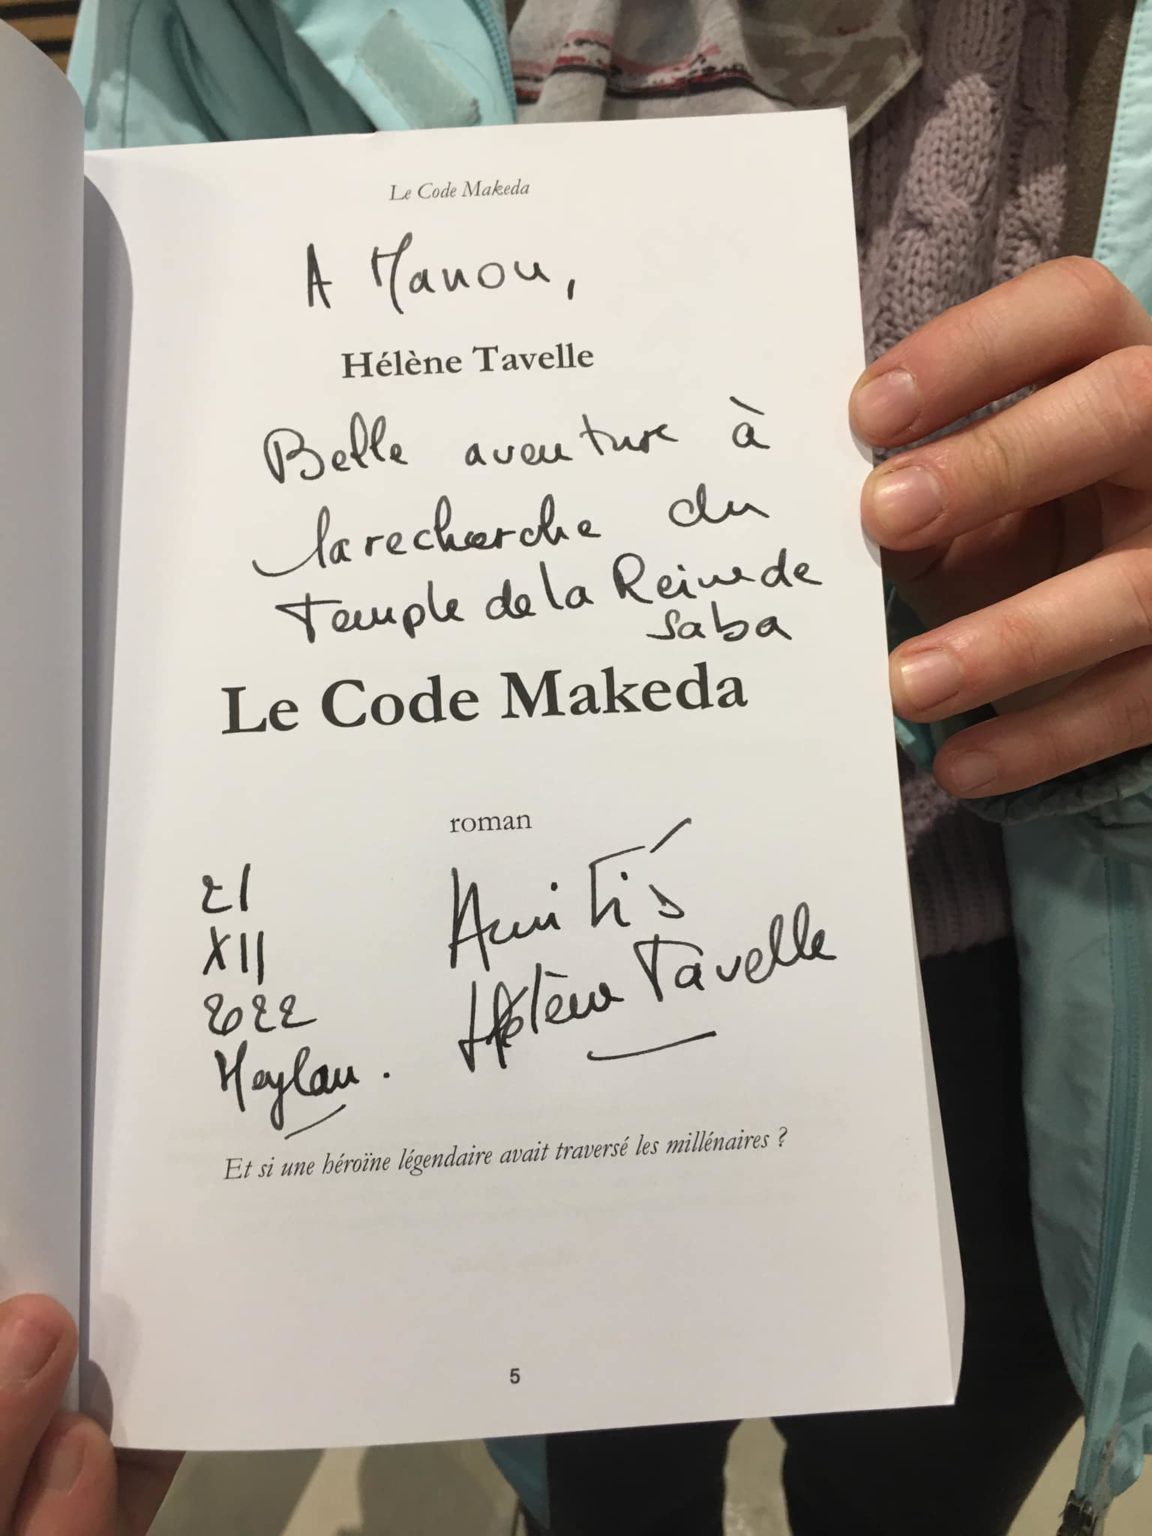 Le Code Makeda
A Manou,
Hélène Tavelle
Belle aventure à
la recherche du
Temple de la Reine de
Saba
Le Code Makeda
roman
21
XII
2022
Meylan.
Amitiés
Hélène Tavelle
Et si une héroïne légendaire avait traversé les millénaires ?
5